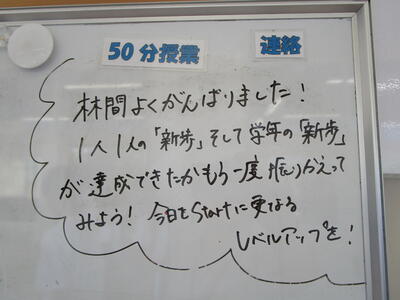 50分授業
連絡
林間よくがんばりました!
1人1人の「新歩」そして学年の「新歩」
が達成できたかもう一度振りかえって
みよう! 今日をStartに更なる
レベルアップを!